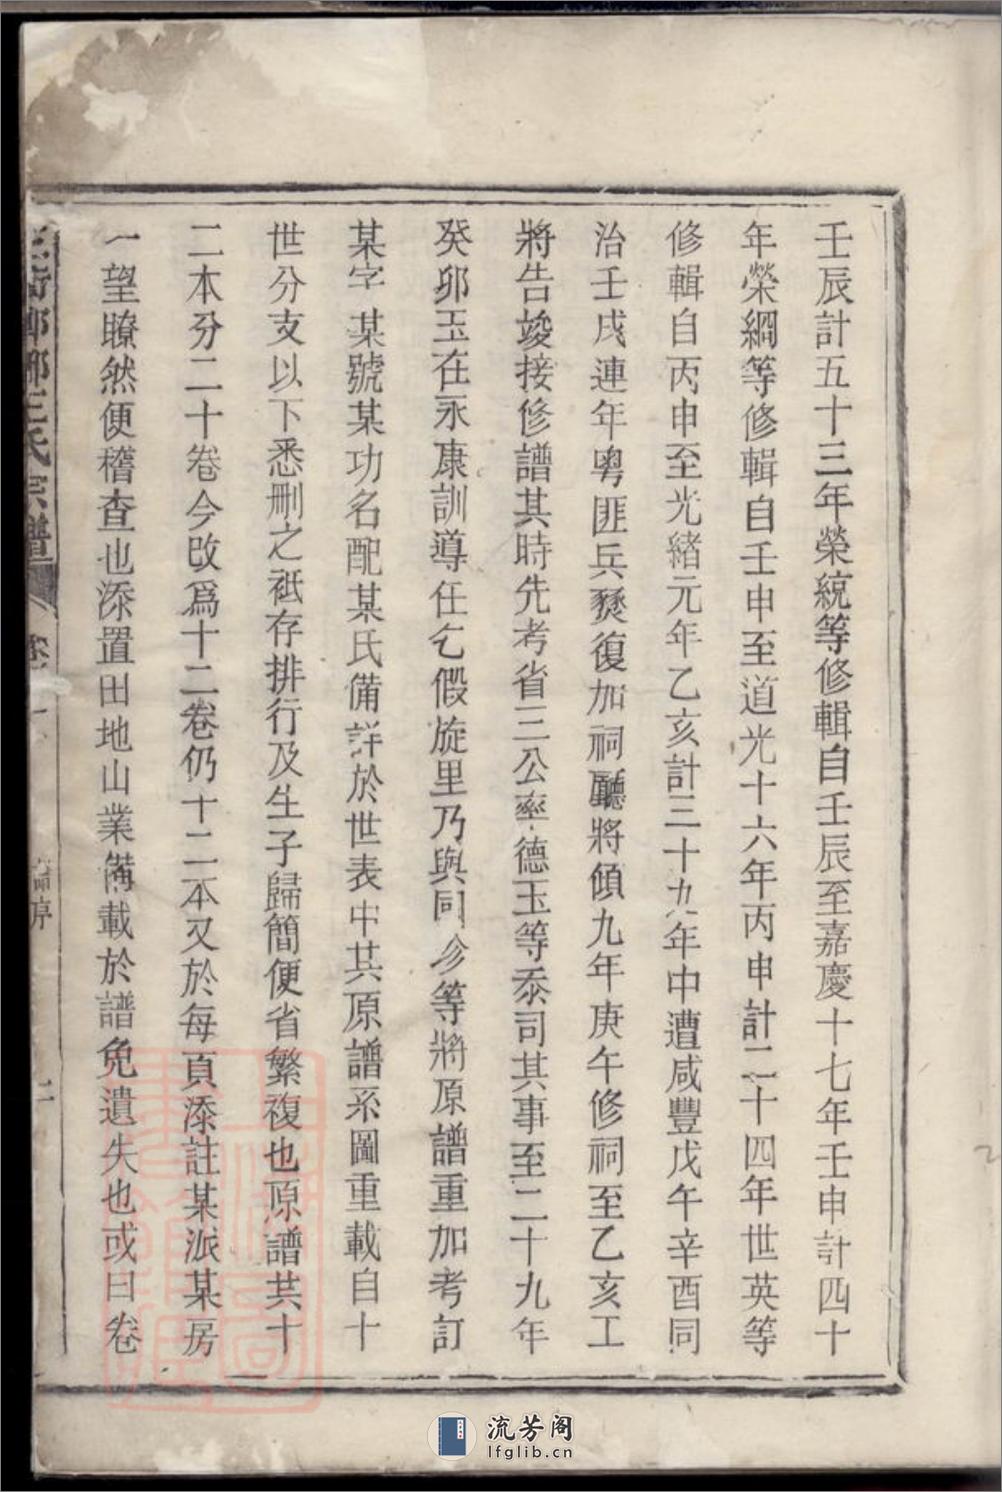 壬辰計五十三年榮統等修輯自壬辰至嘉慶十七年壬申計四十
年榮綱等修輯自壬申至道光十六年丙申計二十四年世英等
修輯自丙申至光緒元年乙亥計三十九年中遭咸豐戊午辛酉同
治壬戌連年粵匪兵燹復加祠廳將傾九年庚午修祠至乙亥工
將告竣接修譜其時先考省三公率德玉等忝司其事至二十九年
癸卯玉在永康訓導任乞假旋里乃與同㐱等將原譜重加考訂
某字某號某功名配某氏備詳於世表中其原譜系圖重載自十
世分支以下悉刪之祗存排行及生子歸簡便省繁複也原譜共十
二本分二十卷今改爲十二卷仍十二本又於每頁添註某派某房
一望瞭然便稽查也添置田地山業備載於譜免遺失也或曰卷
王氏宗譜 卷一 序 二
流芳阁
lfglib.cn